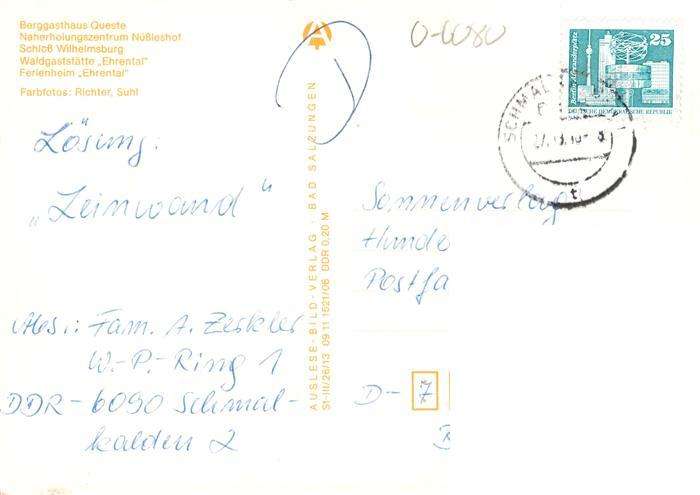 Berggasthaus Queste
Naherholungszentrum Nüßleshof
Schloß Wilhelmsburg
Waldgaststätte „Ehrental“
Ferienheim „Ehrental“
Farbfotos: Richter, Suhl
Lösung:
„Leinwand“
Abs.: Fam. A. Zerkler
W.-P.-Ring 1
DDR-6090 Schmal-
kalden 2
AUSLESE-BILD-VERLAG · BAD SALZUNGEN
St-III/26/13 09 11 1521/06 DDR 0,20 M
0-6080
25
Berlin, Alexanderplatz
DEUTSCHE DEMOKRATISCHE REPUBLIK
Sonnenverlag
Hunde
Postfa
D- 7